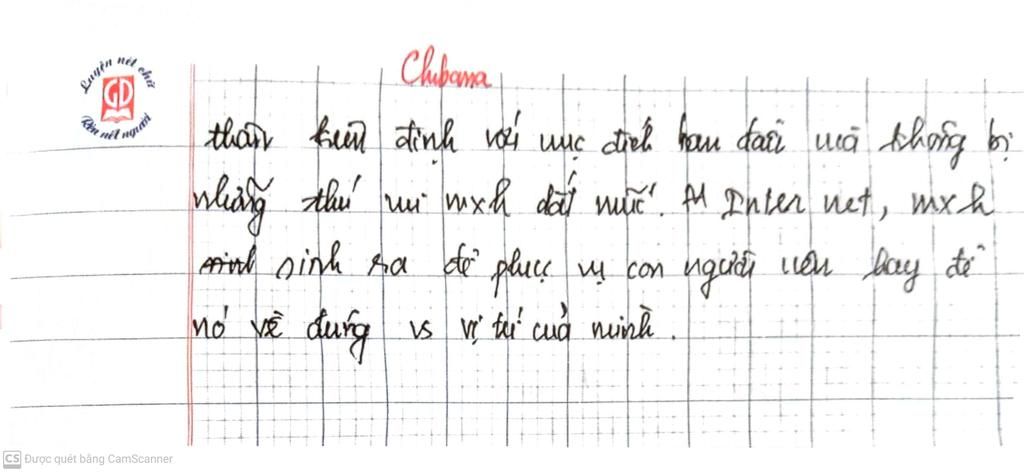 Luyện nét chữ
GD
Rèn nét người
Chibana
thân kiên định với mục đích ban đầu mà không bị
những thứ như mxh dắt mũi. Inter net, mxh
sinh ra để phục vụ con người nên hãy để
nó về đúng vs vị trí của mình.
CS Được quét bằng CamScanner